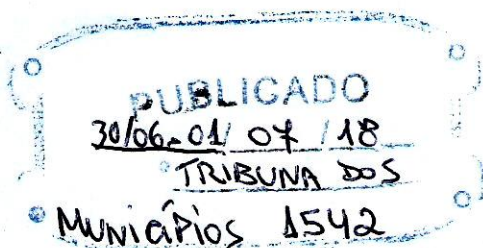 PUBLICADO
30/06-01/ 07 / 18
TRIBUNA DOS
MUNICÍPIOS 1542